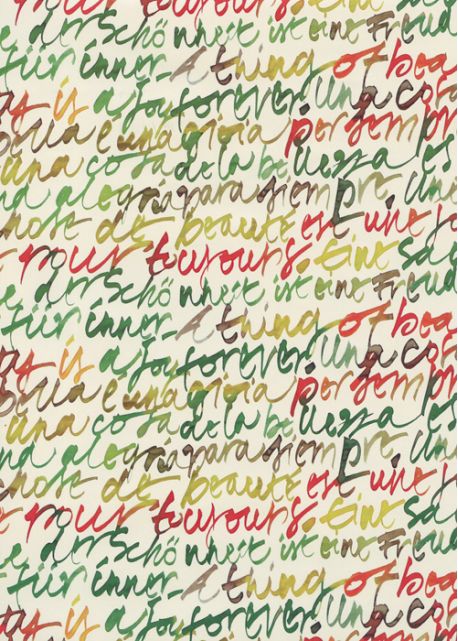 toujours. Eine Sa
e der Schönheit ist eine Freud
für immer. A thing of bea
ty is a joy forever. Una cosa
bella è una gioia per sempr
Una cosa de la bellezza es
na alegria para siempre. Une
hose de beauté est une jo
e pour toujours. Eine Sa
e der Schönheit ist eine Freud
für immer. A thing of bea
ty is a joy forever. Una cosa
bella è una gioia per sempr
Una cosa de la bellezza es
na alegria para siempre. Une
hose de beauté est une jo
e pour toujours. Eine Sa
e der Schönheit ist eine Freud
für immer. A thing of bea
ty is a joy forever. Una cosa